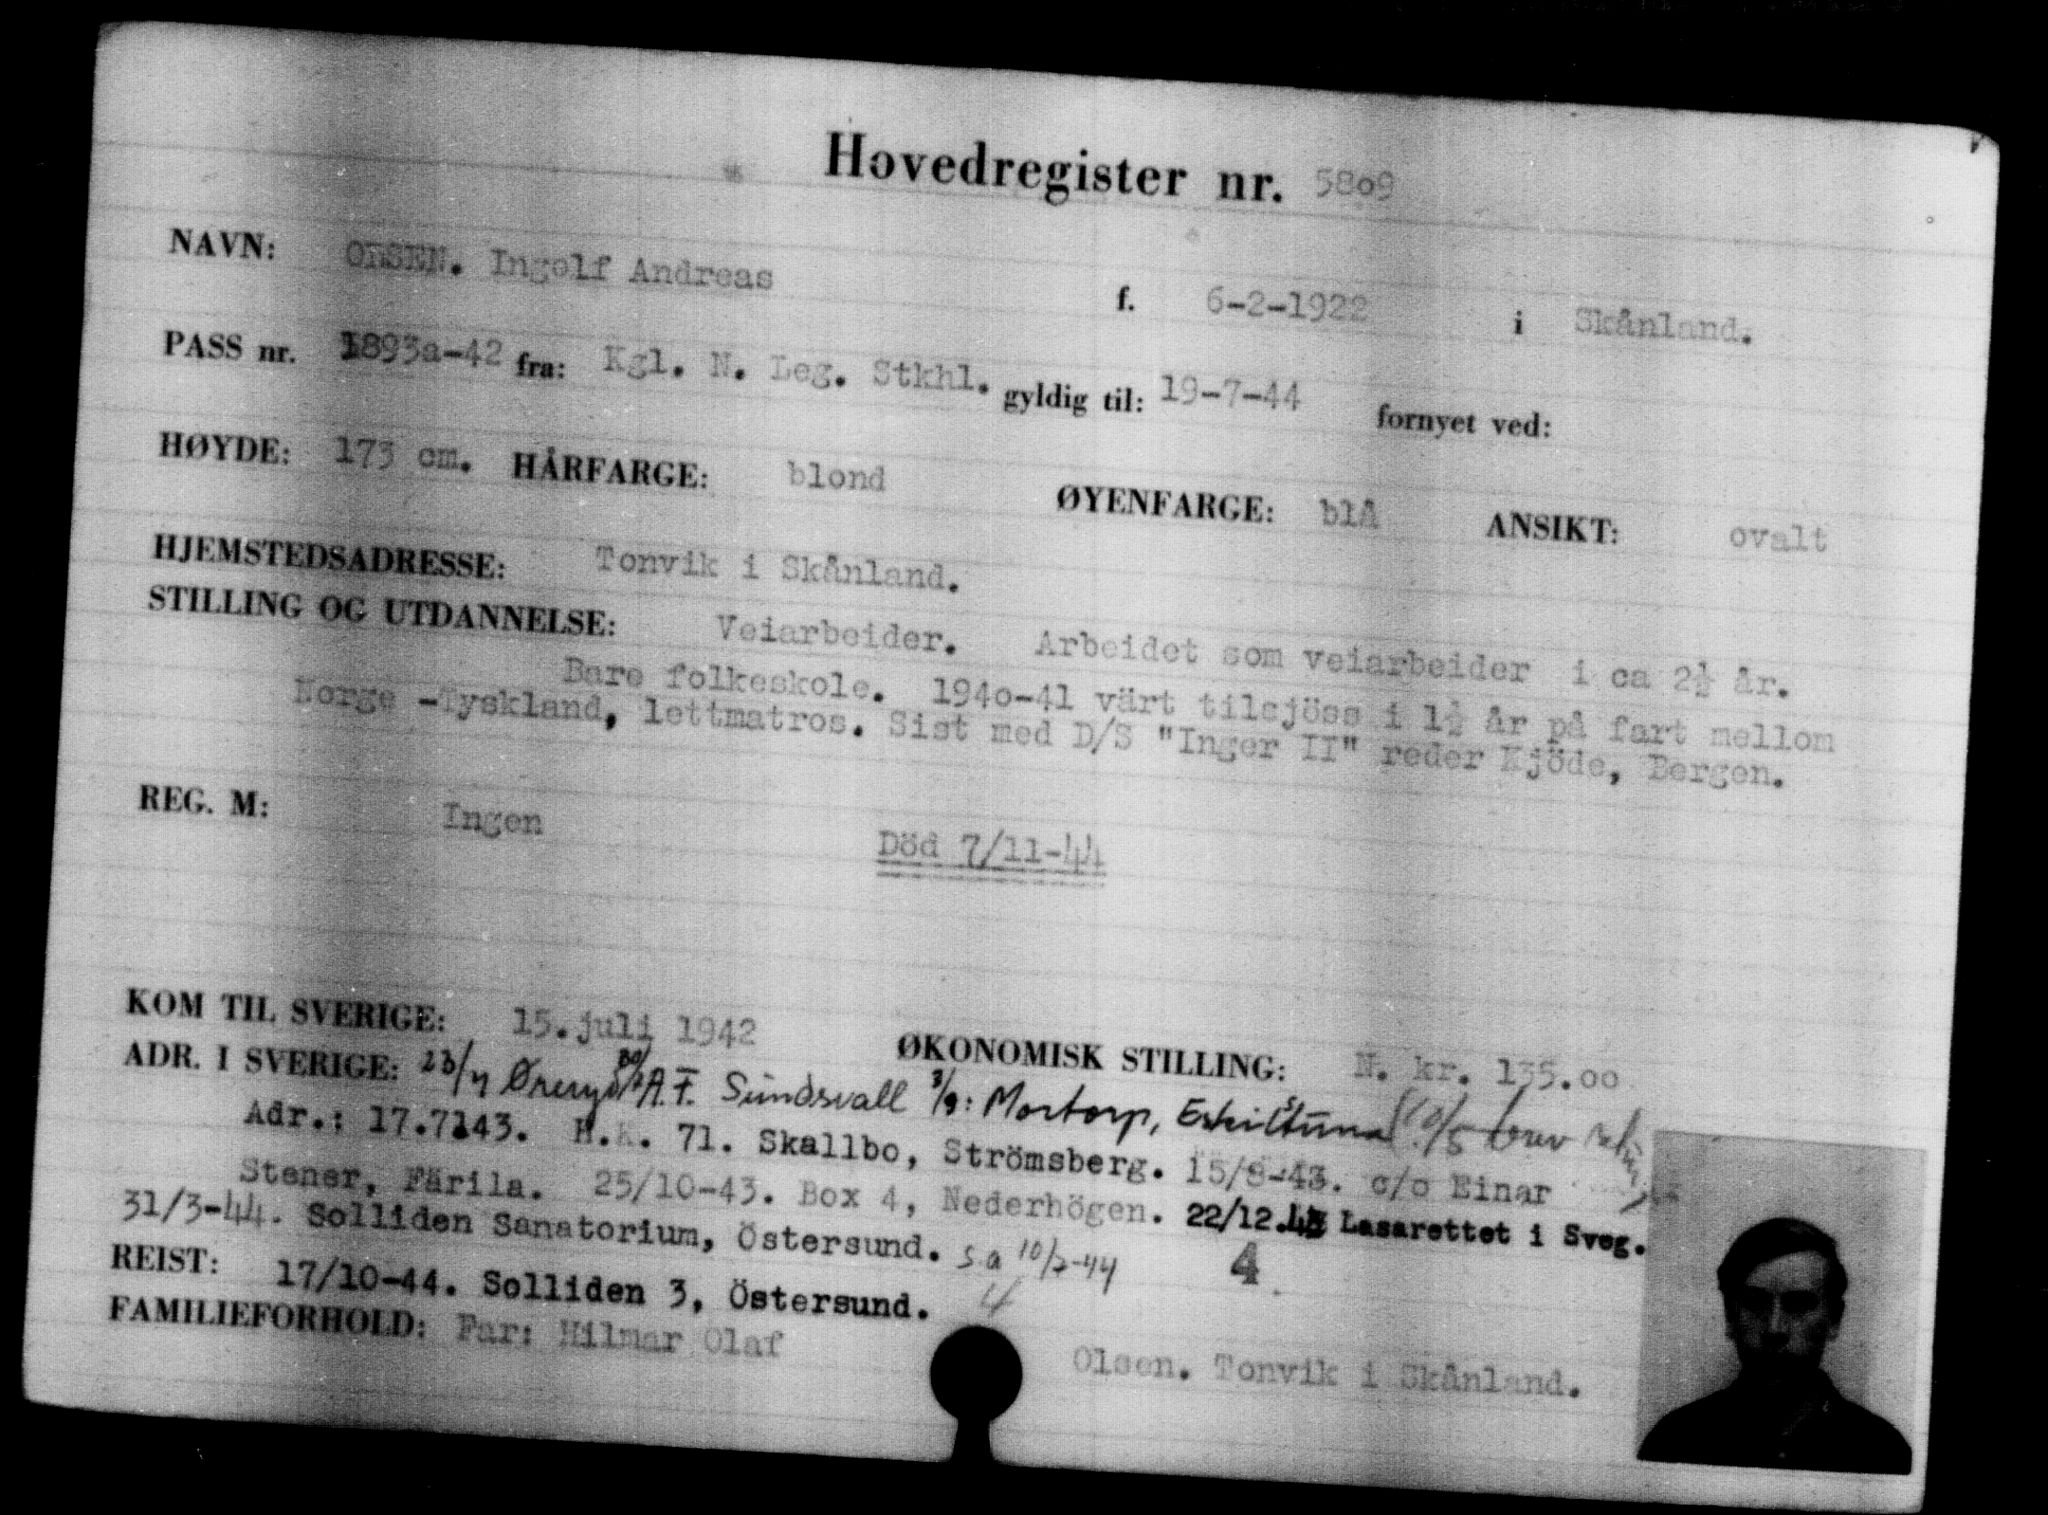 Hovedregister nr. 5809
NAVN: OLSEN. Ingolf Andreas f. 6-2-1922 i Skånland.
PASS nr. 1893a-42 fra: Kgl. N. Leg. Stkhl. gyldig til: 19-7-44 fornyet ved:
HØYDE: 173 cm. HÅRFARGE: blond ØYENFARGE: blå ANSIKT: ovalt
HJEMSTEDSADRESSE: Tonvik i Skånland.
STILLING OG UTDANNELSE: Veiarbeider. Arbeidet som veiarbeider i ca 2½ år.
Bare folkeskole. 1940-41 värt tilsjöss i 1½ år på fart mellom
Norge -Tyskland, lettmatros. Sist med D/S "Inger II" reder Kjöde, Bergen.
REG. M: Ingen
Död 7/11-44
KOM TIL SVERIGE: 15.juli 1942 ØKONOMISK STILLING: N. kr. 135.00
ADR. I SVERIGE: 23/7 A.F. Sundsvall 3/9: Mortorp, Eskilstuna 10/5 brev
Adr.: 17.7.43. H.K. 71. Skallbo, Strömsberg. 15/8-43. c/o Einar
Stener, Färila. 25/10-43. Box 4, Nederhögen. 22/12.43 Lasarettet i Sveg.
31/3-44. Solliden Sanatorium, Östersund. s a 10/2-44 4
REIST: 17/10-44. Solliden 3, Östersund. 4
FAMILIEFORHOLD: Far: Hilmar Olaf Olsen. Tonvik i Skånland.